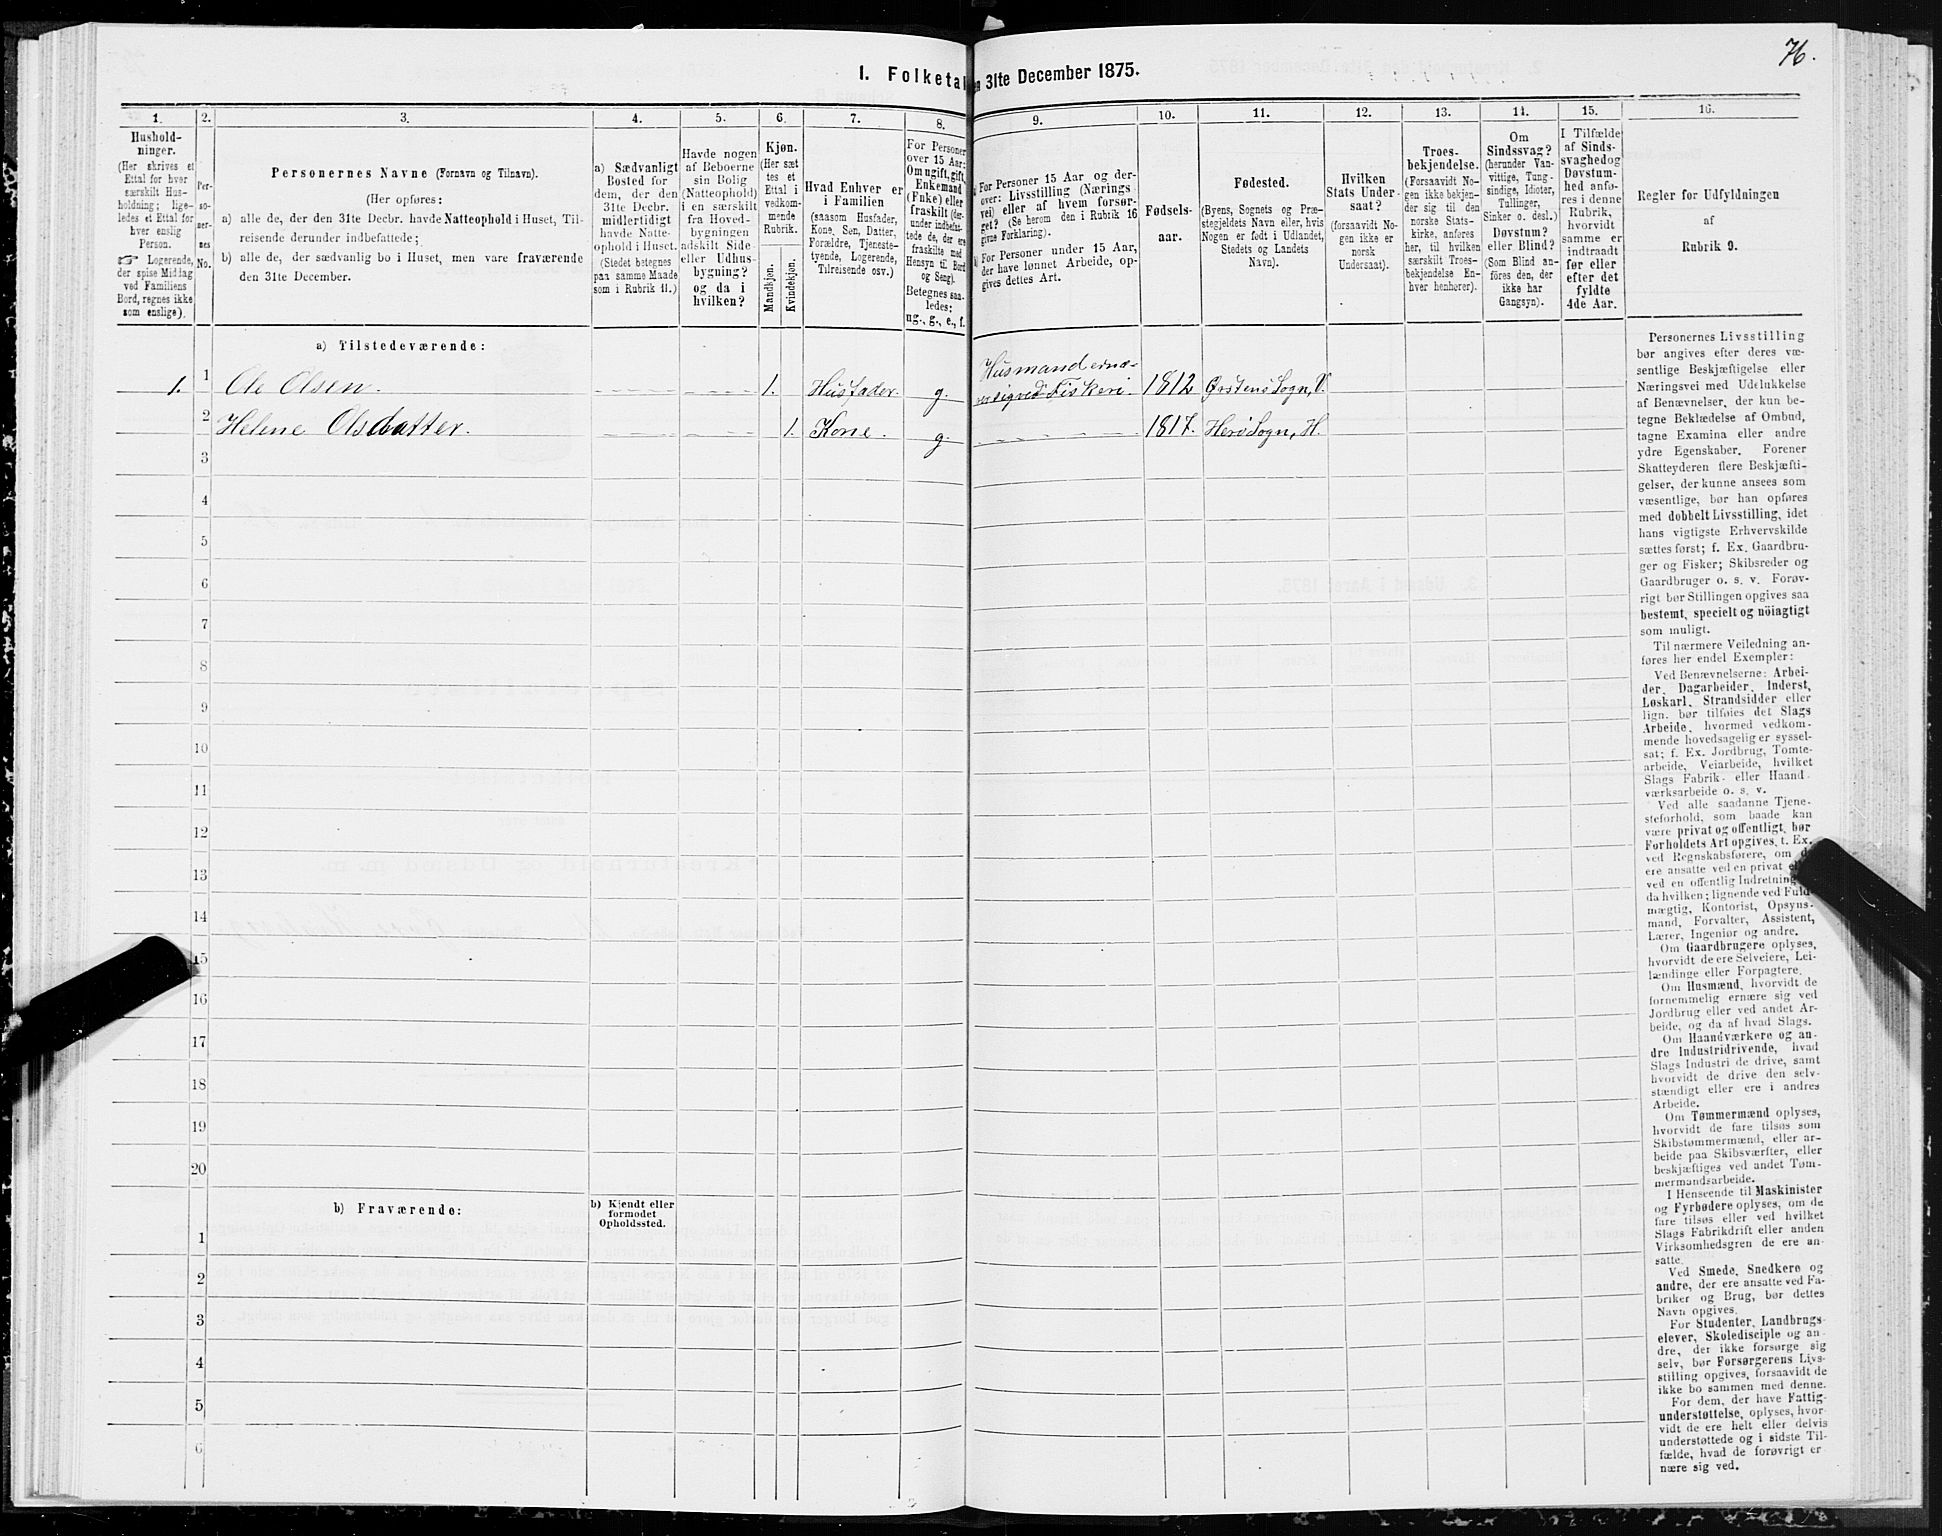 76.
I. Folketal
en 31te December 1875.
1.
2.
3.
4.
5.
6.
7.
8.
9.
10.
11.
12.
13.
14.
15.
16.
Hushold-
ninger.
(Her skrives et
Ettal for hver
særskilt Hus-
holdning; lige-
ledes et Ettal for
hver enslig
Person.
☞ Logerende,
der spise Middag
ved Familiens
Bord, regnes ikke
som enslige).
Per-
so-
ner-
nes
No.
Personernes Navne (Fornavn og Tilnavn).
(Her opføres:
a) alle de, der den 31te Decbr. havde Natteophold i Huset, Til-
reisende derunder indbefattede;
b) alle de, der sædvanlig bo i Huset, men vare fraværende
den 31te December.
a) Sædvanligt
Bosted for
dem, der den
31te Decbr.
midlertidigt
havde Natte-
ophold i Huset.
(Stedet betegnes
paa samme Maade
som i Rubrik 11.)
Havde nogen
af Beboerne
sin Bolig
(Natteophold)
i en særskilt
fra Hoved-
bygningen
adskilt Side-
eller Udhus-
bygning?
og da i
hvilken?
Kjøn.
(Her sæt-
tes et
Ettal i
vedkom-
mende
Rubrik.
Mandkjøn.
Kvindekjøn.
Hvad Enhver er
i Familien
(saasom Husfader,
Kone, Søn, Datter,
Forældre, Tjeneste-
tyende, Logerende,
Tilreisende osv.)
For Personer
over 15 Aar:
Om ugift, gift,
Enkemand
(Enke) eller
fraskilt (der-
under indbefat-
tede de, der ere
fraskilte med
Hensyn til Bord
og Seng).
Betegnes saa-
ledes:
ug., g., e., f.
a) For Personer 15 Aar og der-
over: Livsstilling (Nærings-
vei) eller af hvem forsør-
get? (Se herom den i Rubrik 16
givne Forklaring).
b) For Personer under 15 Aar,
der have lønnet Arbeide, op-
gives dettes Art.
Fødsels-
aar.
Fødested.
(Byens, Sognets og Præ-
stegjeldets Navn eller, hvis
Nogen er født i Udlandet,
Stedets og Landets
Navn).
Hvilken
Stats Under-
saat?
(forsaavidt No-
gen ikke er
norsk
Undersaat).
Troes-
bekjendelse.
(Forsaavidt No-
gen ikke bekjen-
der sig til den
norske Stats-
kirke, anføres
her, til hvilken
særskilt Troes-
bekjendelse En-
hver henhører).
Om
Sindssvag?
(herunder Van-
vittige, Tung-
sindige, Idioter,
Tullinger,
Sinker o. desl.)
Døvstum?
eller Blind?
(Som Blind an-
føres den, der
ikke har
Gangsyn).
I Tilfælde
af Sinds-
svaghed og
Døvstum-
hed anfø-
res i denne
Rubrik,
hvorvidt
samme er
indtraadt
før eller
efter det
fyldte
4de Aar.
Regler for Udfyldningen
af
Rubrik 9.
a) Tilstedeværende:
1. 1 Ole Olsen. 1. Husfader. g. Husmand ernæ-
rer sig ved Fiskeri. 1812 Ørstens Sogn, V.
2 Helene Olsdatter. 1. Kone. g. 1817. Herø Sogn, H.
3
4
5
6
7
8
9
10
11
12
13
14
15
16
17
18
19
20
b) Fraværende:
b) Kjendt eller
formodet
Opholdssted.
1
2
3
4
5
6
Personernes Livsstilling
bør angives efter deres væ-
sentlige Beskjæftigelse eller
Næringsvei med Udelukkelse
af Benævnelser, der kun be-
tegne Beklædelse af Ombud,
tagne Examina eller andre
ydre Egenskaber. Forener
Skatteyderen flere Beskjæfti-
gelser, der kunne ansees som
væsentlige, bør han opføres
med dobbelt Livsstilling, idet
hans vigtigste Erhvervskilde
sættes først; f. Ex. Gaardbru-
ger og Fisker; Skibsreder og
Gaardbruger o. s. v. Forøv-
rigt bør Stillingen opgives saa
bestemt, specielt og nöiagtigt
som muligt.
Til nærmere Veiledning an-
føres her endel Exempler:
Ved Benævnelserne: Arbei-
der, Dagarbeider, Inderst,
Løskarl, Strandsidder eller
lign. bør tilføies det Slags
Arbeide, hvormed vedkom-
mende hovedsagelig er syssel-
sat; f. Ex. Jordbrug, Tomte-
arbeide, Veiarbeide, hvilket
Slags Fabrik- eller Haand-
værksarbeide o. s. v.
Ved alle saadanne Tjene-
steforhold, som baade kan
være privat og offentligt, bør
Forholdets Art opgives, t. Ex.
ved Regnskabsførere, om de
ere ansatte ved en privat eller
ved en offentlig Indretning og
da hvilken; lignende ved Fuld-
mægtig, Kontorist, Opsyns-
mand, Forvalter, Assistent,
Lærer, Ingeniør og andre.
Om Gaardbrugere oplyses,
hvorvidt de ere Selveiere, Lei-
lændinge eller Forpagtere.
Om Husmænd, hvorvidt de
fornemmelig ernære sig ved
Jordbrug eller ved andet Ar-
beide, og da af hvad Slags.
Om Haandværkere og an-
dre Industridrivende, hvad
Slags Industri de drive, samt
hvorvidt de drive den selv-
stændigt eller ere i andres
Arbeide.
Om Tømmermænd oplyses,
hvorvidt de fare tilsøs som
Skibstømmermænd, eller ar-
beide paa Skibsværfter, eller
beskjæftiges ved andet Tøm-
mermandsarbeide.
I Henseende til Maskinister
og Fyrbødere oplyses, om de
fare tilsøs eller ved hvilket
Slags Fabrikdrift eller anden
Virksomhedsgren de ere an-
satte.
Ved Smede, Snedkere og
andre, der ere ansatte ved Fa-
briker og Brug, bør dettes
Navn opgives.
For Studenter, Landbrugs-
elever, Skoledisciple og an-
dre, der ikke forsørge sig
selv, bør Forsørgerens Livs-
stilling opgives, forsaavidt de
ikke bo sammen med denne.
For dem, der have Fattig-
understøttelse, oplyses, hvor-
vidt de ere helt eller delvis
understøttede og i sidste Til-
fælde, hvad de forøvrigt er-
nære sig ved.